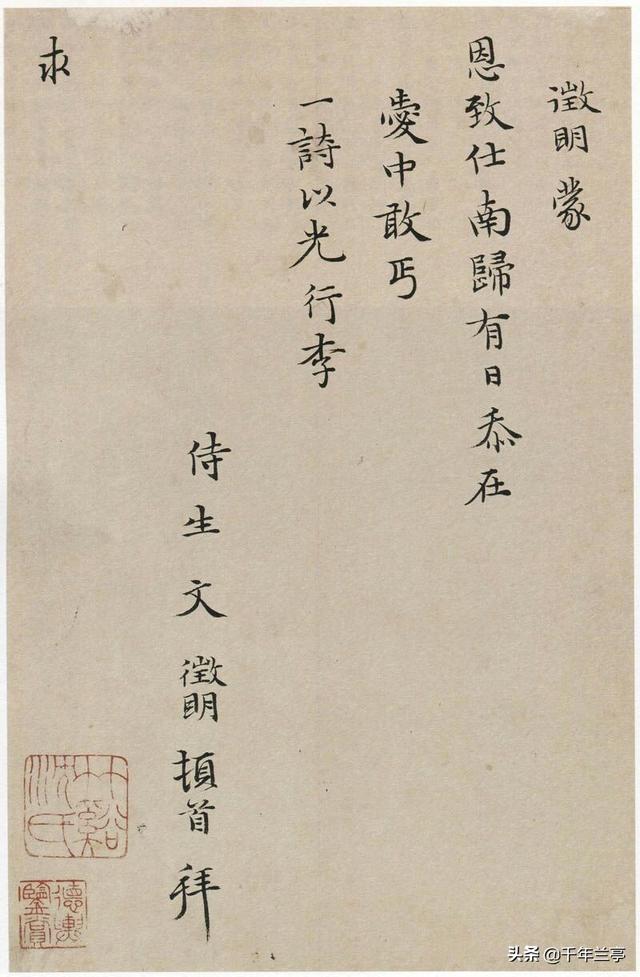 徵明蒙
恩致仕南歸有日忝在
愛中敢丐
一詩以光行李
侍生文徵明頓首拜
求
德輿鑒賞
头条 @千年兰亭